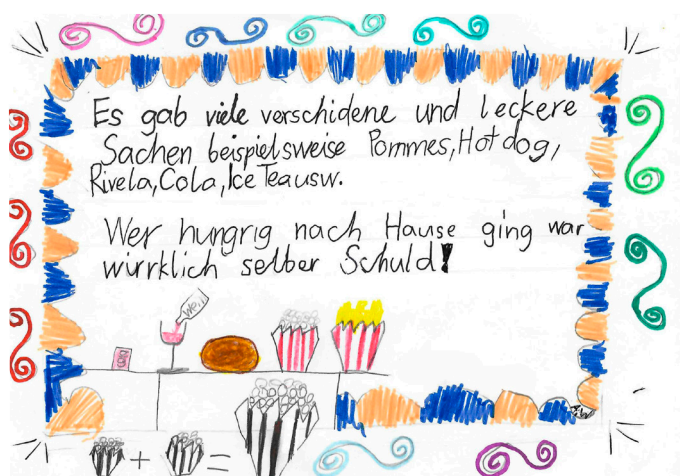 Es gab viele verschidene und leckere
Sachen beispielsweise Pommes, Hot dog,
Rivela, Cola, Ice Tea usw.
Wer hungrig nach Hause ging war
wirrklich selber Schuld!
+ =